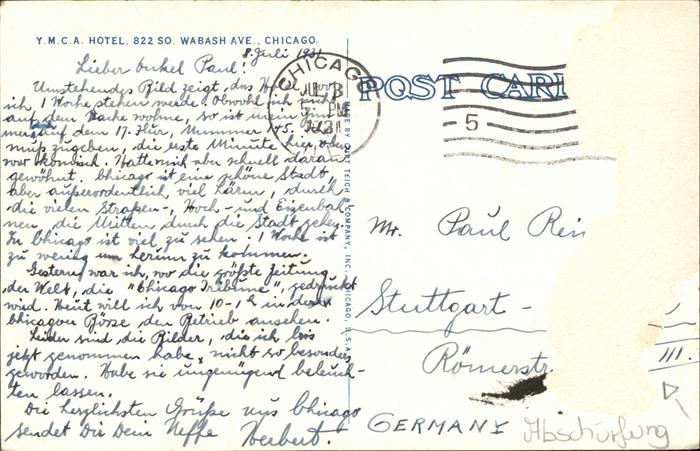 Y.M.C.A. HOTEL, 822 SO. WABASH AVE., CHICAGO.
8. Juli 1931
Lieber Onkel Paul!
Umstehendes Bild zeigt, das Hotel wo
ich 1 Woche stehen werde. Obwohl ich nicht
auf dem Dache wohne, so ist mein
auf dem 17. Flur, Nummer 45.
muß zugeben, die erste Minute hier oben
war komisch. Hatte mich aber schnell daran
gewöhnt. Chicago ist eine schöne Stadt,
aber außerordentlich viel Lärm, durch
die vielen Straßen-, Hoch- und Eisenbah-
nen, die Mitten durch die Stadt gehen.
In Chicago ist viel zu sehen. 1 Woche ist
zu wenig um herum zu kommen.
Gestern war ich, wo die größte Zeitung
der Welt, die "Chicago Tribune", gedruckt
wird. Heut will ich von 10-12 in der
Chicagoer Börse den Betrieb ansehen.
Leider sind die Bilder, die ich bis
jetzt genommen habe, nicht so besonders
geworden. Habe sie ungenügend beleuch-
ten lassen.
Die herzlichsten Grüße aus Chicago
sendet Dir Dein Neffe Herbert.
MADE BY CURT TEICH & COMPANY, INC., CHICAGO, U.S.A.
CHICAGO
JUL 8
5 PM
1931
5
POST CARD
Mr. Paul Rein
Stuttgart -
Römerstr
III.
GERMANY
Abschürfung